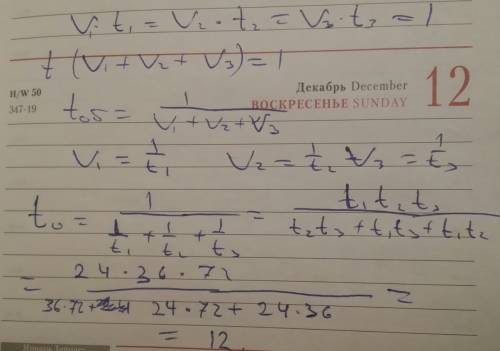 V₁·t₁ = V₂·t₂ = V₃·t₃ = 1
t (V₁ + V₂ + V₃) = 1
H/W 50
347-19
Декабрь December
ВОСКРЕСЕНЬЕ SUNDAY
12
t₀₅ = 1 / (V₁ + V₂ + V₃)
V₁ = 1/t₁ V₂ = 1/t₂ V₃ = 1/t₃
t₀ = 1 / (1/t₁ + 1/t₂ + 1/t₃) = t₁ t₂ t₃ / (t₂t₃ + t₁t₃ + t₁t₂)
= 24·36·72 / (36·72 + 24·72 + 24·36) =
= 12